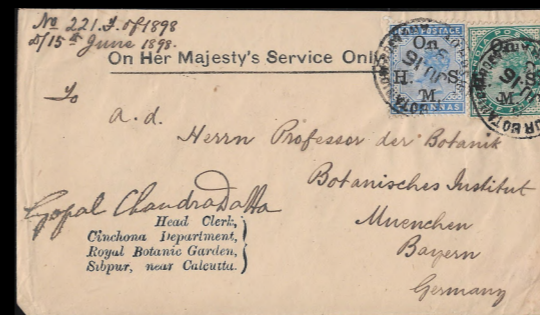 No 221.G. of 1898
D/15th June 1898.
On Her Majesty's Service Only
On
H. S.
M.
ANNAS
On
H. S.
M.
JU 15
To
a. d.
Herrn Professor der Botanik
Botanisches Institut
Muenchen
Bayern
Germany
Gopal Chandra Datta
Head Clerk,
Cinchona Department,
Royal Botanic Garden,
Sibpur, near Calcutta.